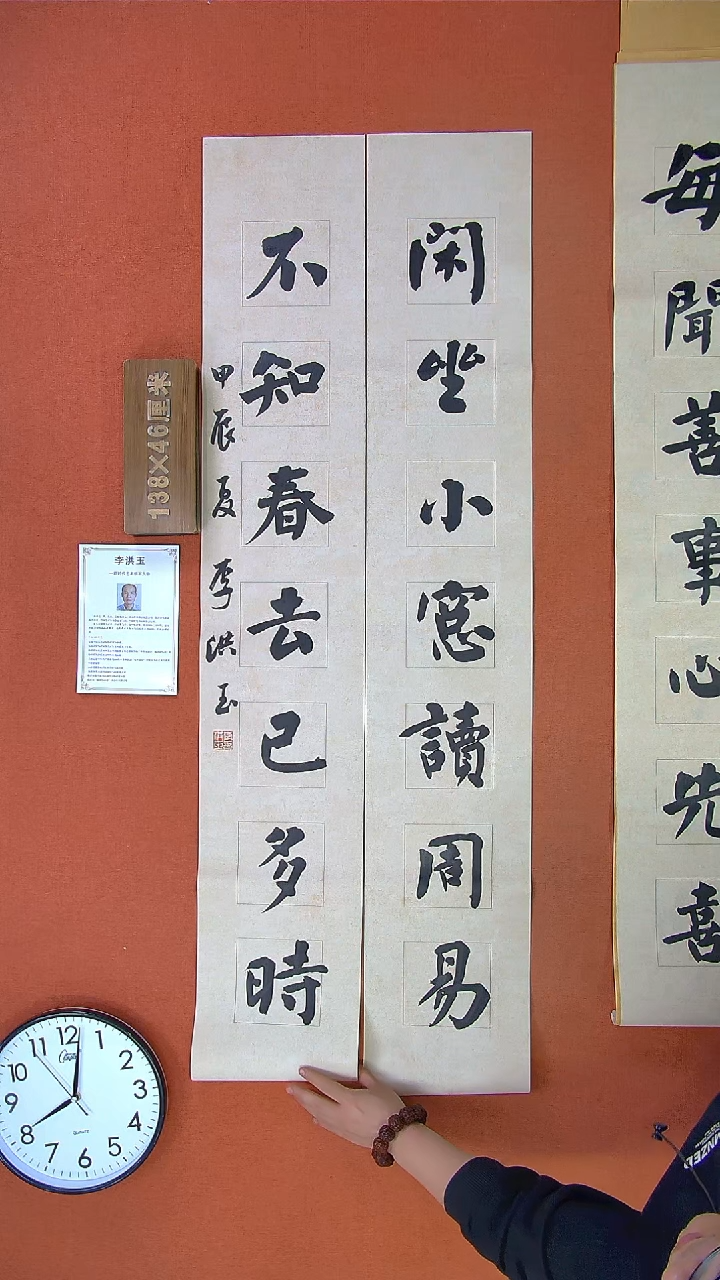 每聞善事心先喜
閑坐小窓讀周易
不知春去已多時
甲辰夏李洪玉
138×46厘米
李洪玉
12
1
2
3
4
5
6
7
8
9
10
11
QUARTZ